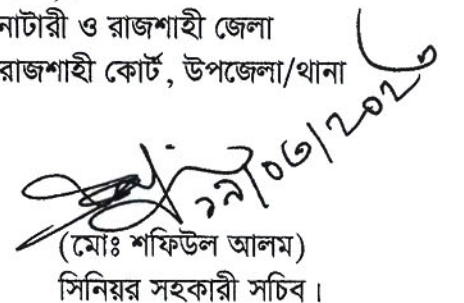 নাটারী ও রাজশাহী জেলা
রাজশাহী কোর্ট, উপজেলা/থানা
(মোঃ শফিউল আলম)
সিনিয়র সহকারী সচিব।